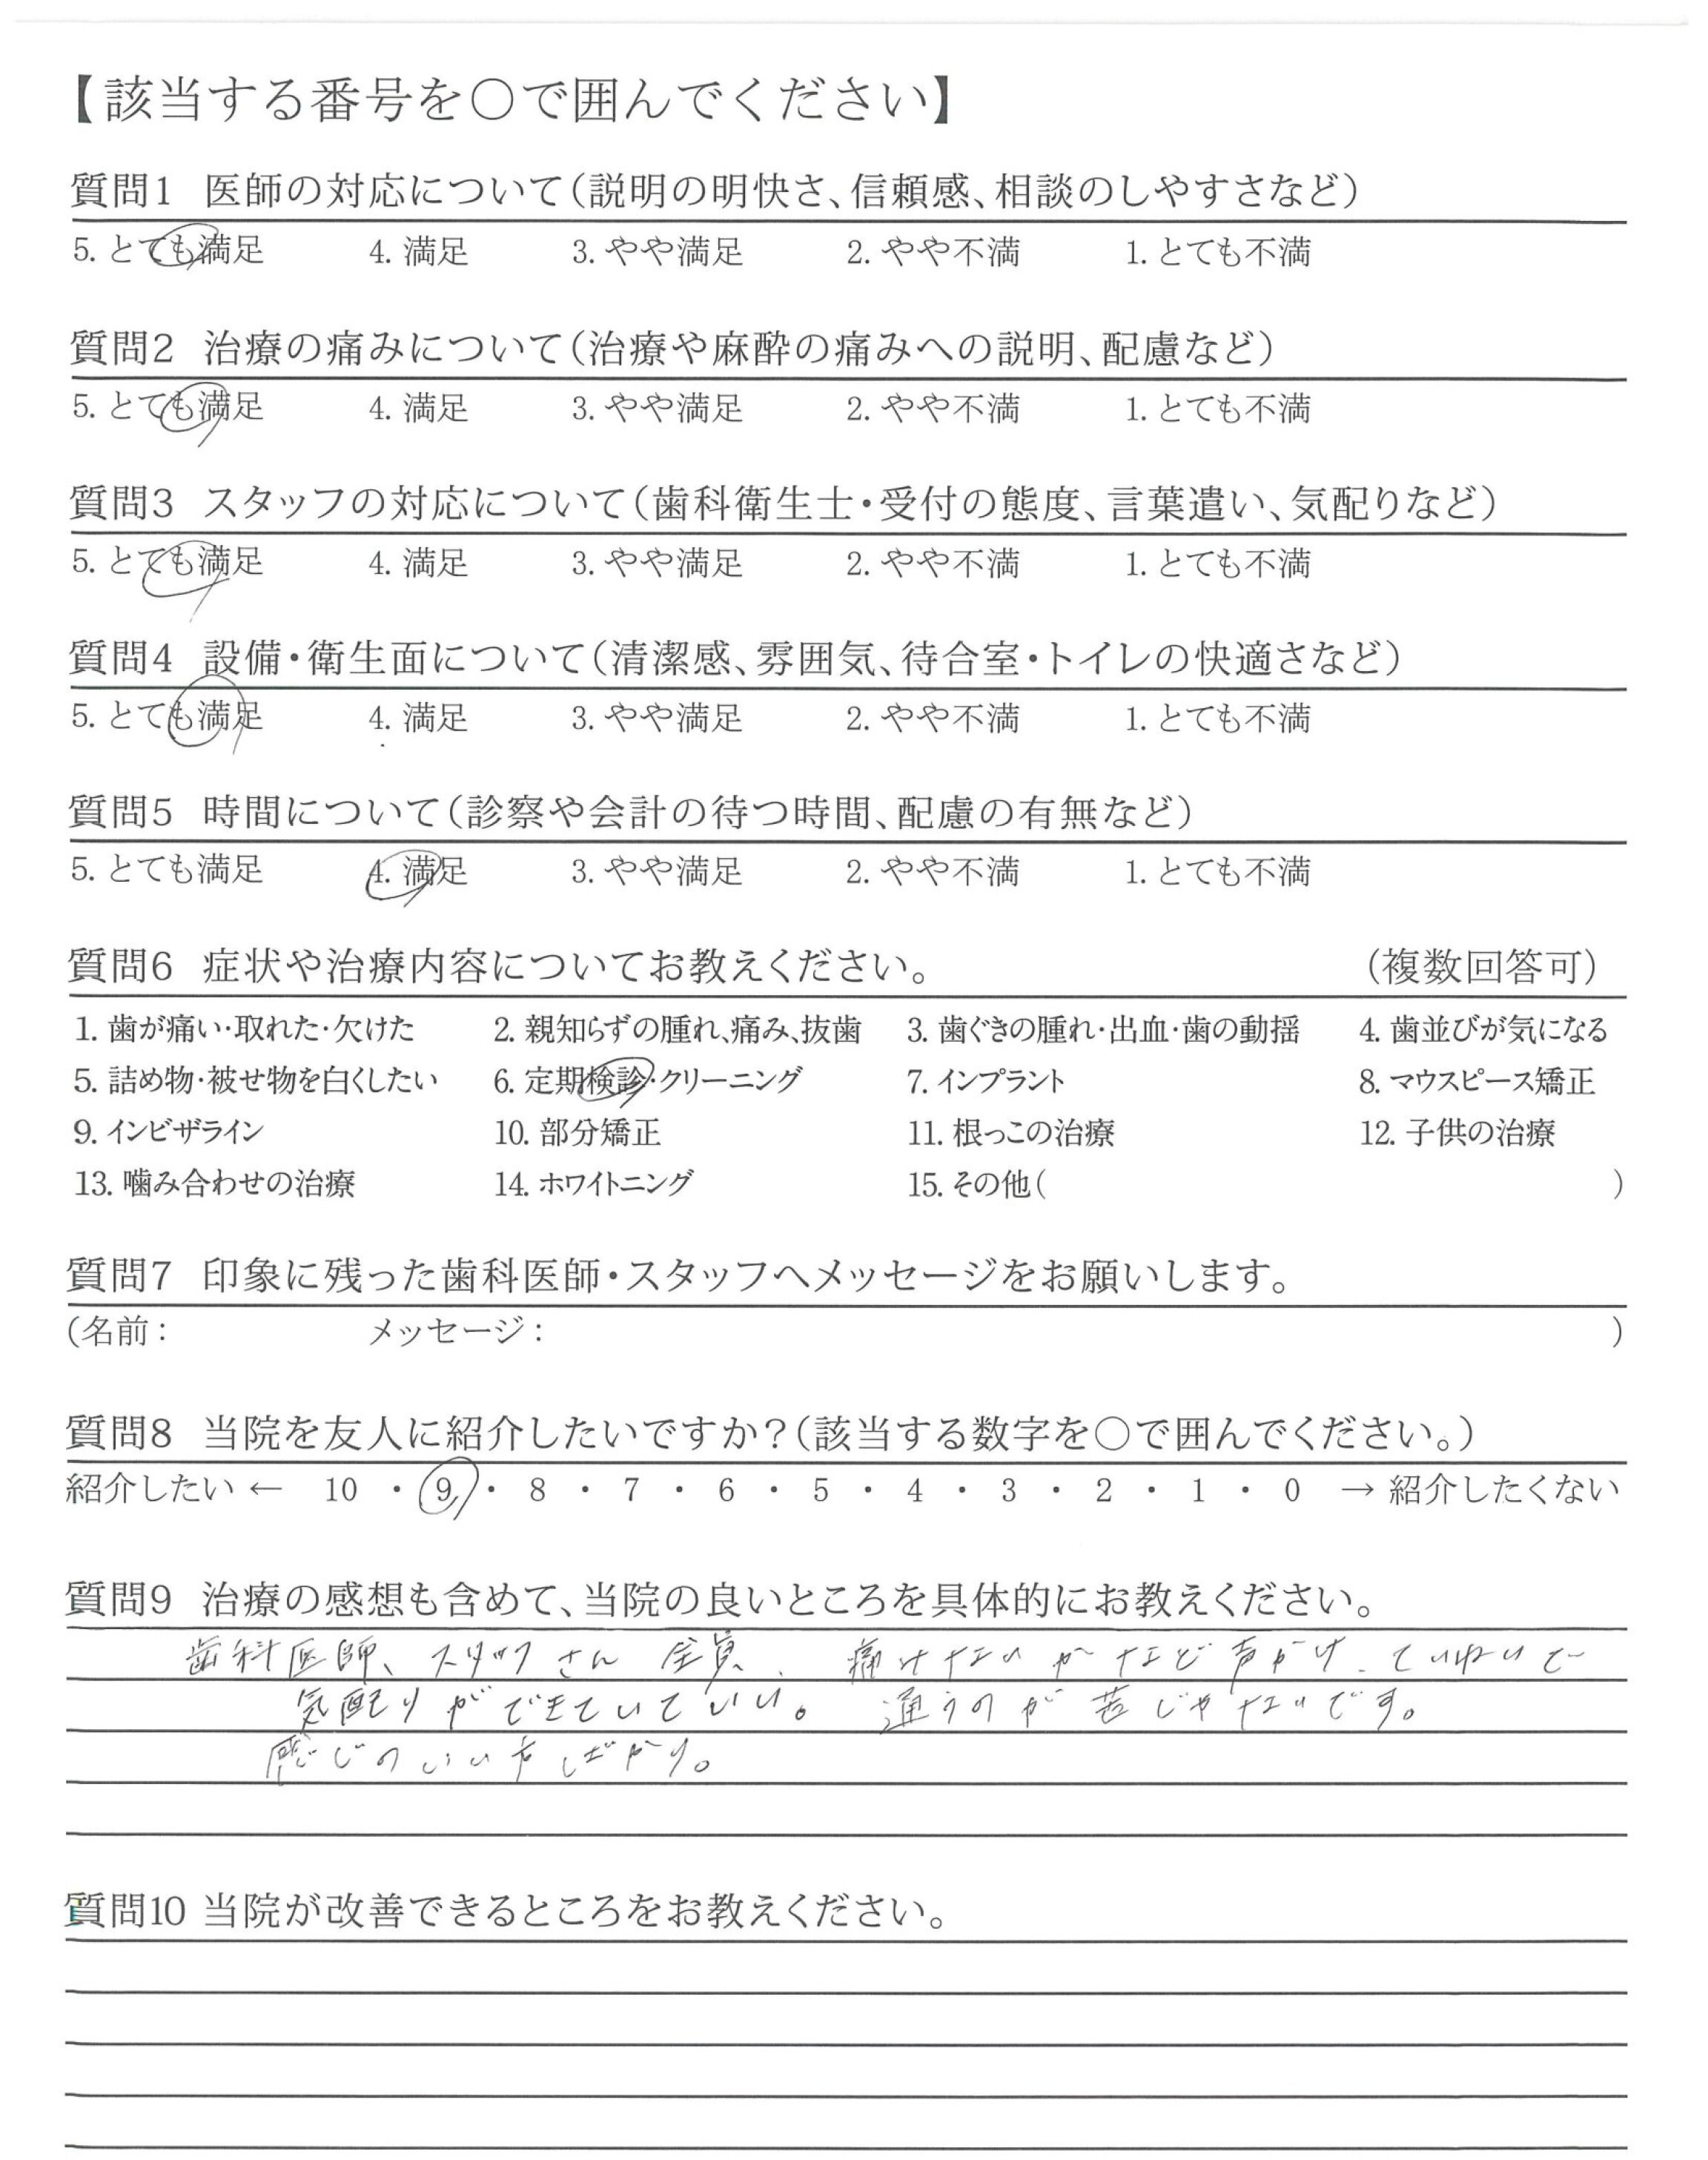 【該当する番号を○で囲んでください】
質問1 医師の対応について(説明の明快さ、信頼感、相談のしやすさなど)
5. とても満足 4. 満足 3. やや満足 2. やや不満 1. とても不満
質問2 治療の痛みについて(治療や麻酔の痛みへの説明、配慮など)
5. とても満足 4. 満足 3. やや満足 2. やや不満 1. とても不満
質問3 スタッフの対応について(歯科衛生士・受付の態度、言葉遣い、気配りなど)
5. とても満足 4. 満足 3. やや満足 2. やや不満 1. とても不満
質問4 設備・衛生面について(清潔感、雰囲気、待合室・トイレの快適さなど)
5. とても満足 4. 満足 3. やや満足 2. やや不満 1. とても不満
質問5 時間について(診察や会計の待つ時間、配慮の有無など)
5. とても満足 4. 満足 3. やや満足 2. やや不満 1. とても不満
質問6 症状や治療内容についてお教えください。 (複数回答可)
1. 歯が痛い・取れた・欠けた 2. 親知らずの腫れ、痛み、抜歯 3. 歯ぐきの腫れ・出血・歯の動揺 4. 歯並びが気になる
5. 詰め物・被せ物を白くしたい 6. 定期検診・クリーニング 7. インプラント 8. マウスピース矯正
9. インビザライン 10. 部分矯正 11. 根っこの治療 12. 子供の治療
13. 噛み合わせの治療 14. ホワイトニング 15. その他( )
質問7 印象に残った歯科医師・スタッフへメッセージをお願いします。
(名前: メッセージ: )
質問8 当院を友人に紹介したいですか?(該当する数字を○で囲んでください。)
紹介したい ← 10 ・ 9 ・ 8 ・ 7 ・ 6 ・ 5 ・ 4 ・ 3 ・ 2 ・ 1 ・ 0 → 紹介したくない
質問9 治療の感想も含めて、当院の良いところを具体的にお教えください。
歯科医師、スタッフさん 全員、痛くないかなど声かけ、ていねいで
気配りができていていい。通うのが苦じゃないです。
感じのいい方ばかり。
質問10 当院が改善できるところをお教えください。